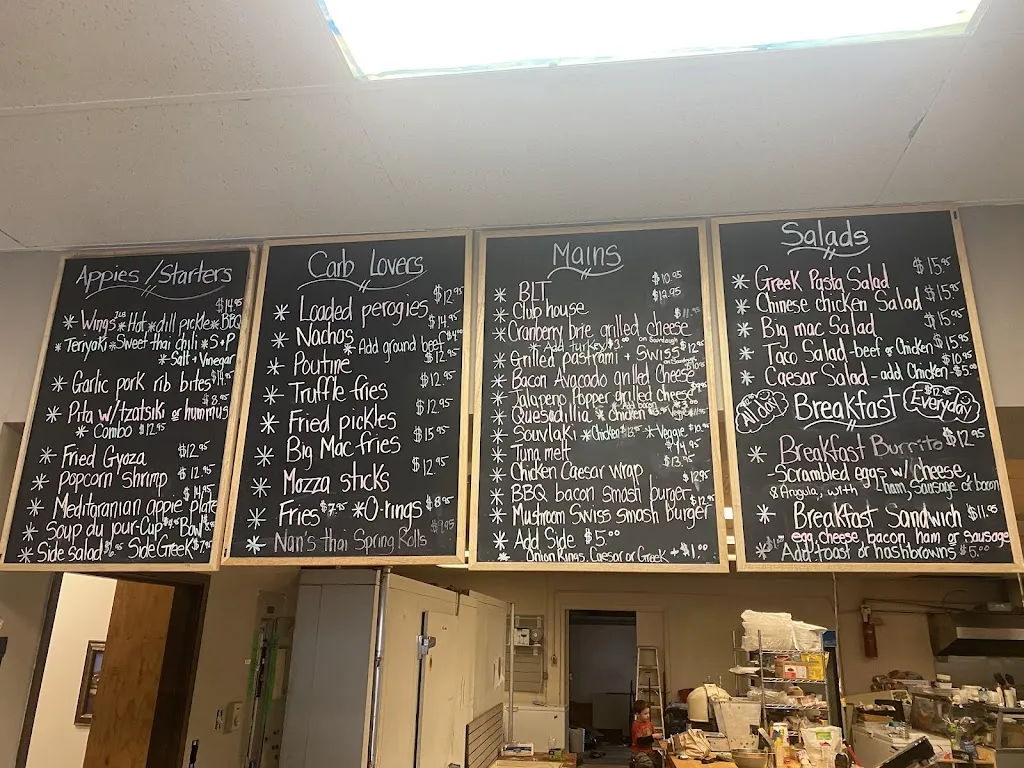 Appies/Starters
$14.95
* Wings *Hot *dill pickle *BBQ
*Terryaki *Sweet thai chili *S+P
*Salt + Vinegar
* Garlic pork rib bites $14.95
$8.95
* Pita w/tzatsiki or hummus
* Combo $12.95
* Fried Gyoza $12.95
* Popcorn Shrimp $12.95
$14.95
* Meditiranian appie plate
* Soup du jour-Cup Bowl
* Side Salad Side Greek
Carb Lovers
* Loaded perogies $12.95
* Nachos $14.95
* Add ground beef $4.00
* Poutine $12.95
* Truffle fries $12.95
* Fried pickles $12.95
* Big Mac fries $15.95
* Mozza sticks $12.95
* Fries $7.95 *O-rings $8.95
* Nan's thai Spring Rolls $9.95
Mains
* BLT $10.95
* Club house $12.95
* Cranberry brie grilled cheese
* Add turkey $3.00 on Sourdough
* Grilled pastrami + Swiss $12.95
* Bacon Avacado grilled Cheese
* Jalapeno Popper grilled cheese
* Quesadilla * Chicken
* Souvlaki *Chicken *Veggie $10.95
* Tuna melt $14.95
* Chicken Caesar wrap $13.95
* BBQ bacon smash burger $12.95
* Mushroom Swiss smash burger $12.95
* Add Side $5.00
* Onion Rings, Caesar or Greek + $1.00
Salads
* Greek Pasta Salad $15.95
* Chinese chicken Salad $15.95
* Big mac Salad $15.95
* Taco Salad-beef or Chicken $15.95
* Caesar Salad - add Chicken-$5.00 $10.95
All day Breakfast Everyday
* Breakfast Burrito $12.95
Scrambled eggs w/ cheese
ham, Sausage or bacon
* Breakfast Sandwich $11.95
egg, cheese, bacon, ham or sausage
* Add toast or hashbrowns $5.00